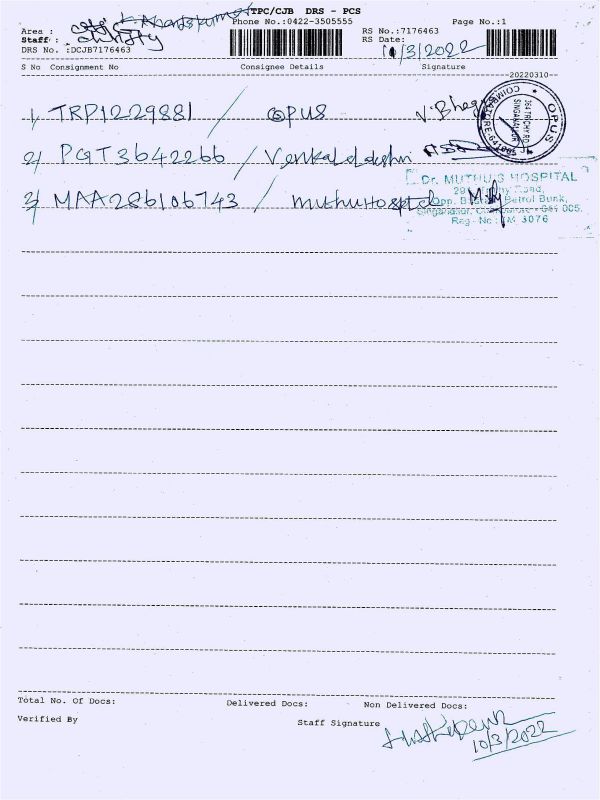 TPC/CJB DRS - PCS
Phone No.:0422-3505555 Page No.:1
Area :
Staff :
DRS No. :DCJB7176463
RS No.:7176463
RS Date: 10/3/2022
S No Consignment No Consignee Details Signature
20220310
1) TRP1229881 / OPUS V. Bhagy
OPUS
364 TRICHY RD
SINGANALLUR
COIMBATORE-641005
2) PGT3642266 / Venkatalakshmi
3) MAA286106743 / Muthu Hospital
Dr. MUTHU'S HOSPITAL
Opp. Petrol Bunk,
Singanallur, Coimbatore - 641 005.
Reg- No: 3076
Total No. Of Docs: Delivered Docs: Non Delivered Docs:
Verified By Staff Signature
10/3/2022